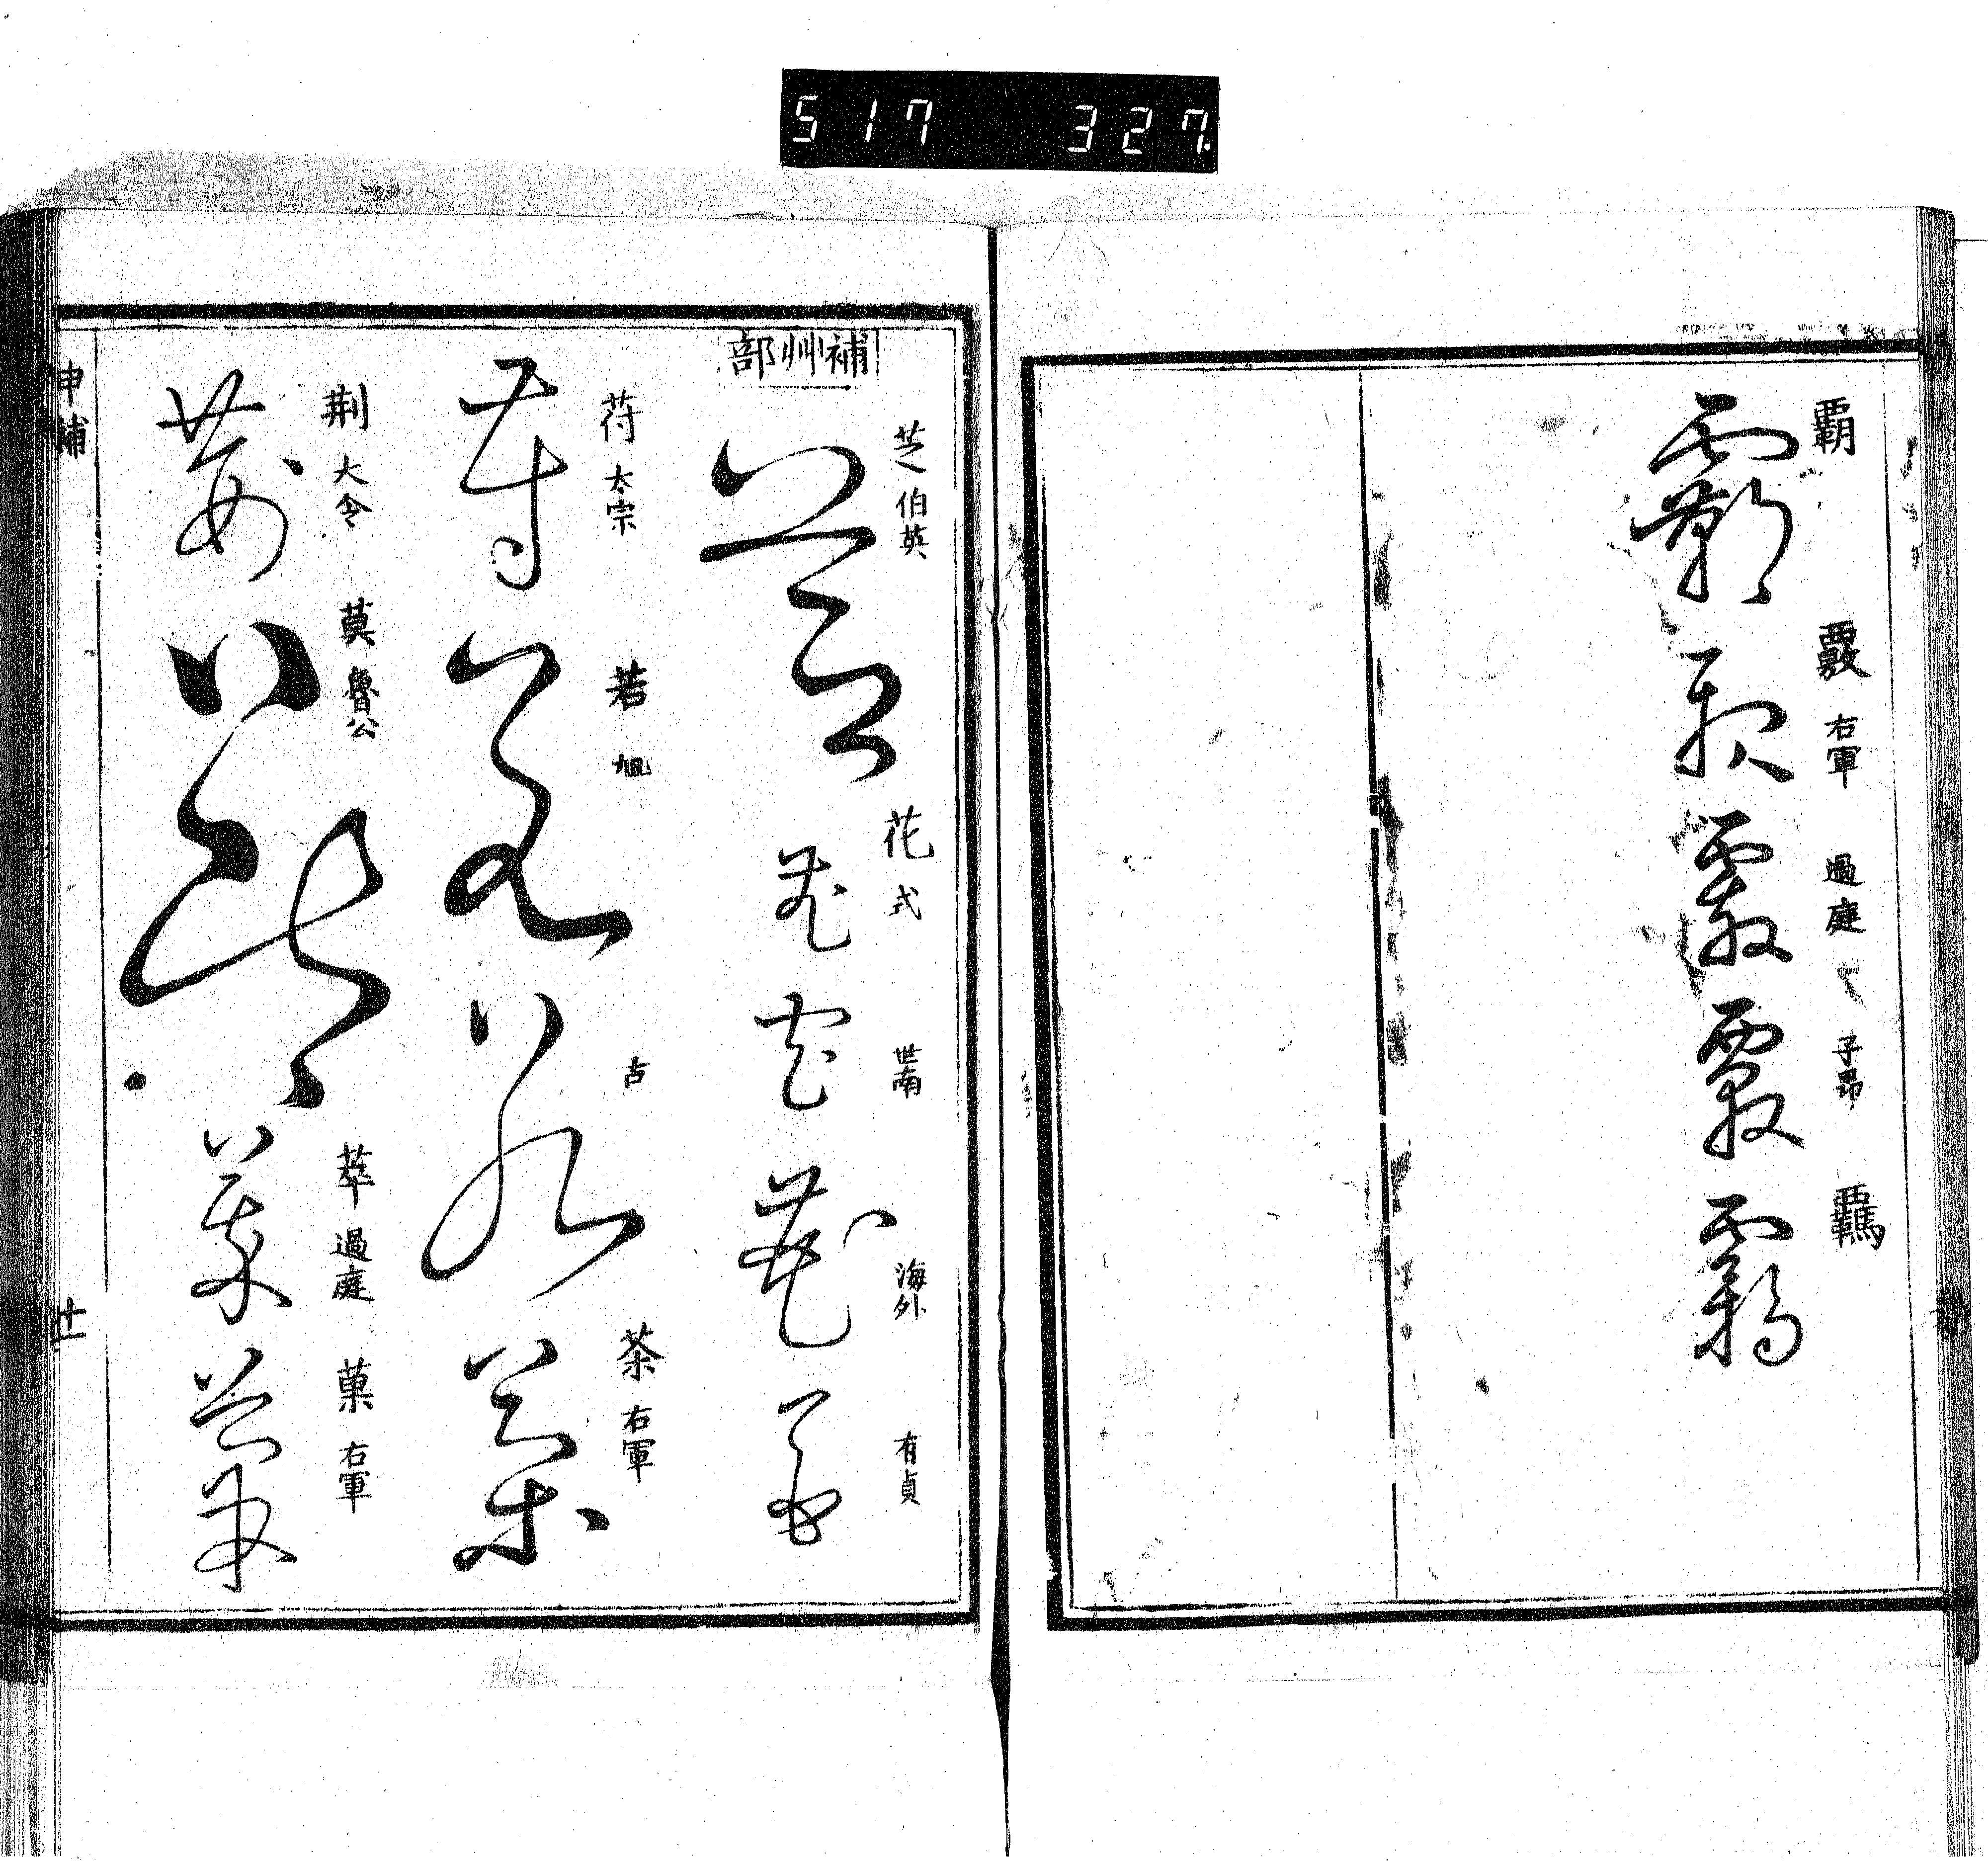 517 327.
覇 覈 右軍 過庭 〻 子昂 羈
補艸部
芝 伯英 花 式 世南 海外 有貞
苻 太宗 若 旭 古 茶 右軍
荆 大令 莫 魯公 萃 過庭 菓 右軍
申補 十一